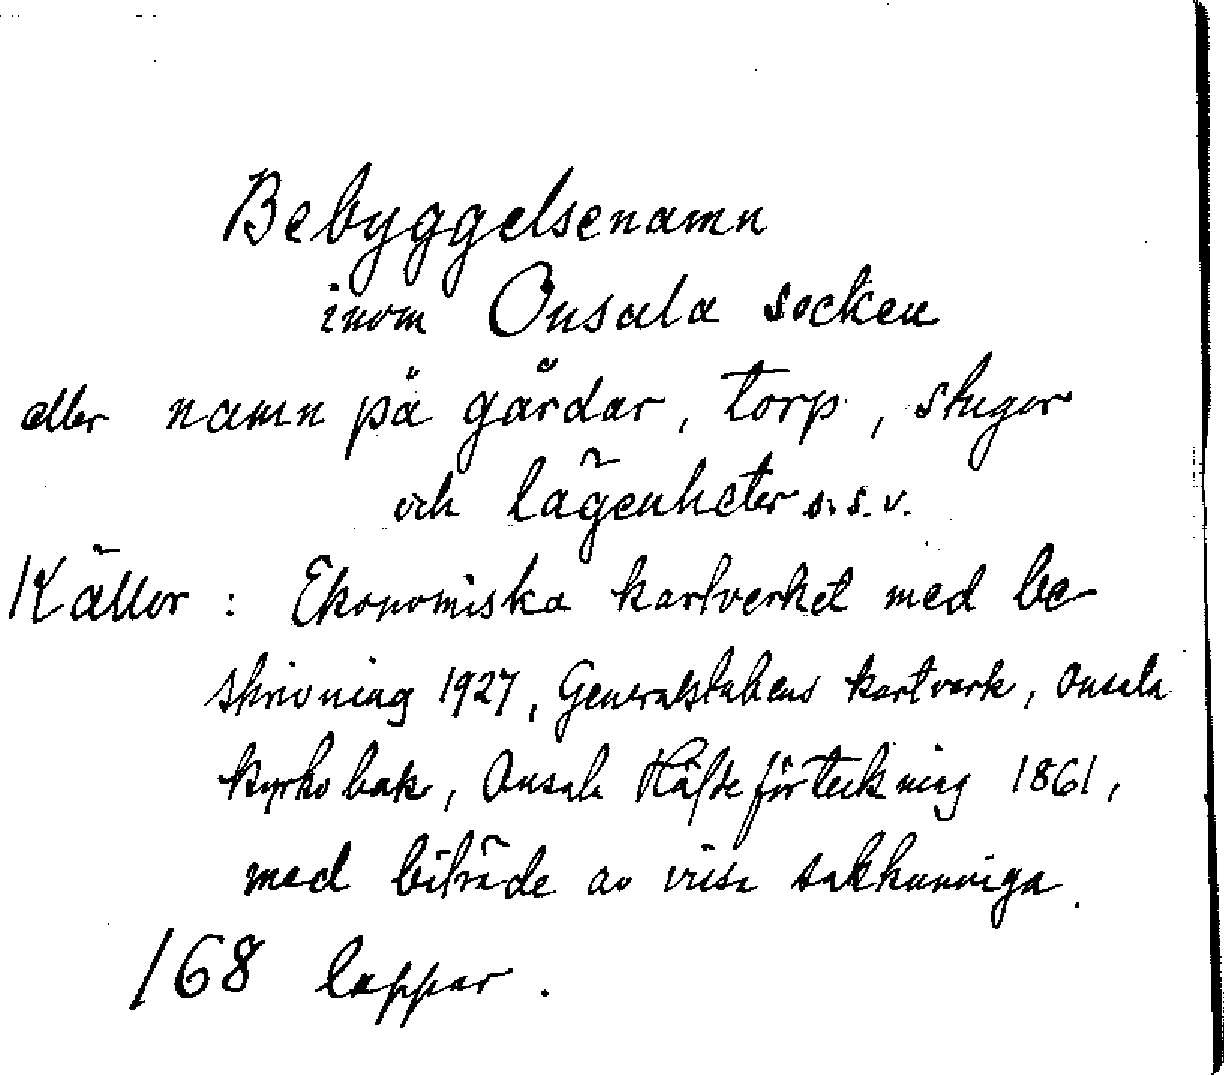 Bebyggelsenamn
inom Onsala socken
eller namn på gårdar, torp, stugor
och lägenheter o.s.v.
Källor: Ekonomiska kartverket med be-
skrivning 1927, Generalstabens kartverk, Onsala
kyrkobok, Onsala Häfteförteckning 1861,
med biträde av vissa sakkunniga.
168 lappar.